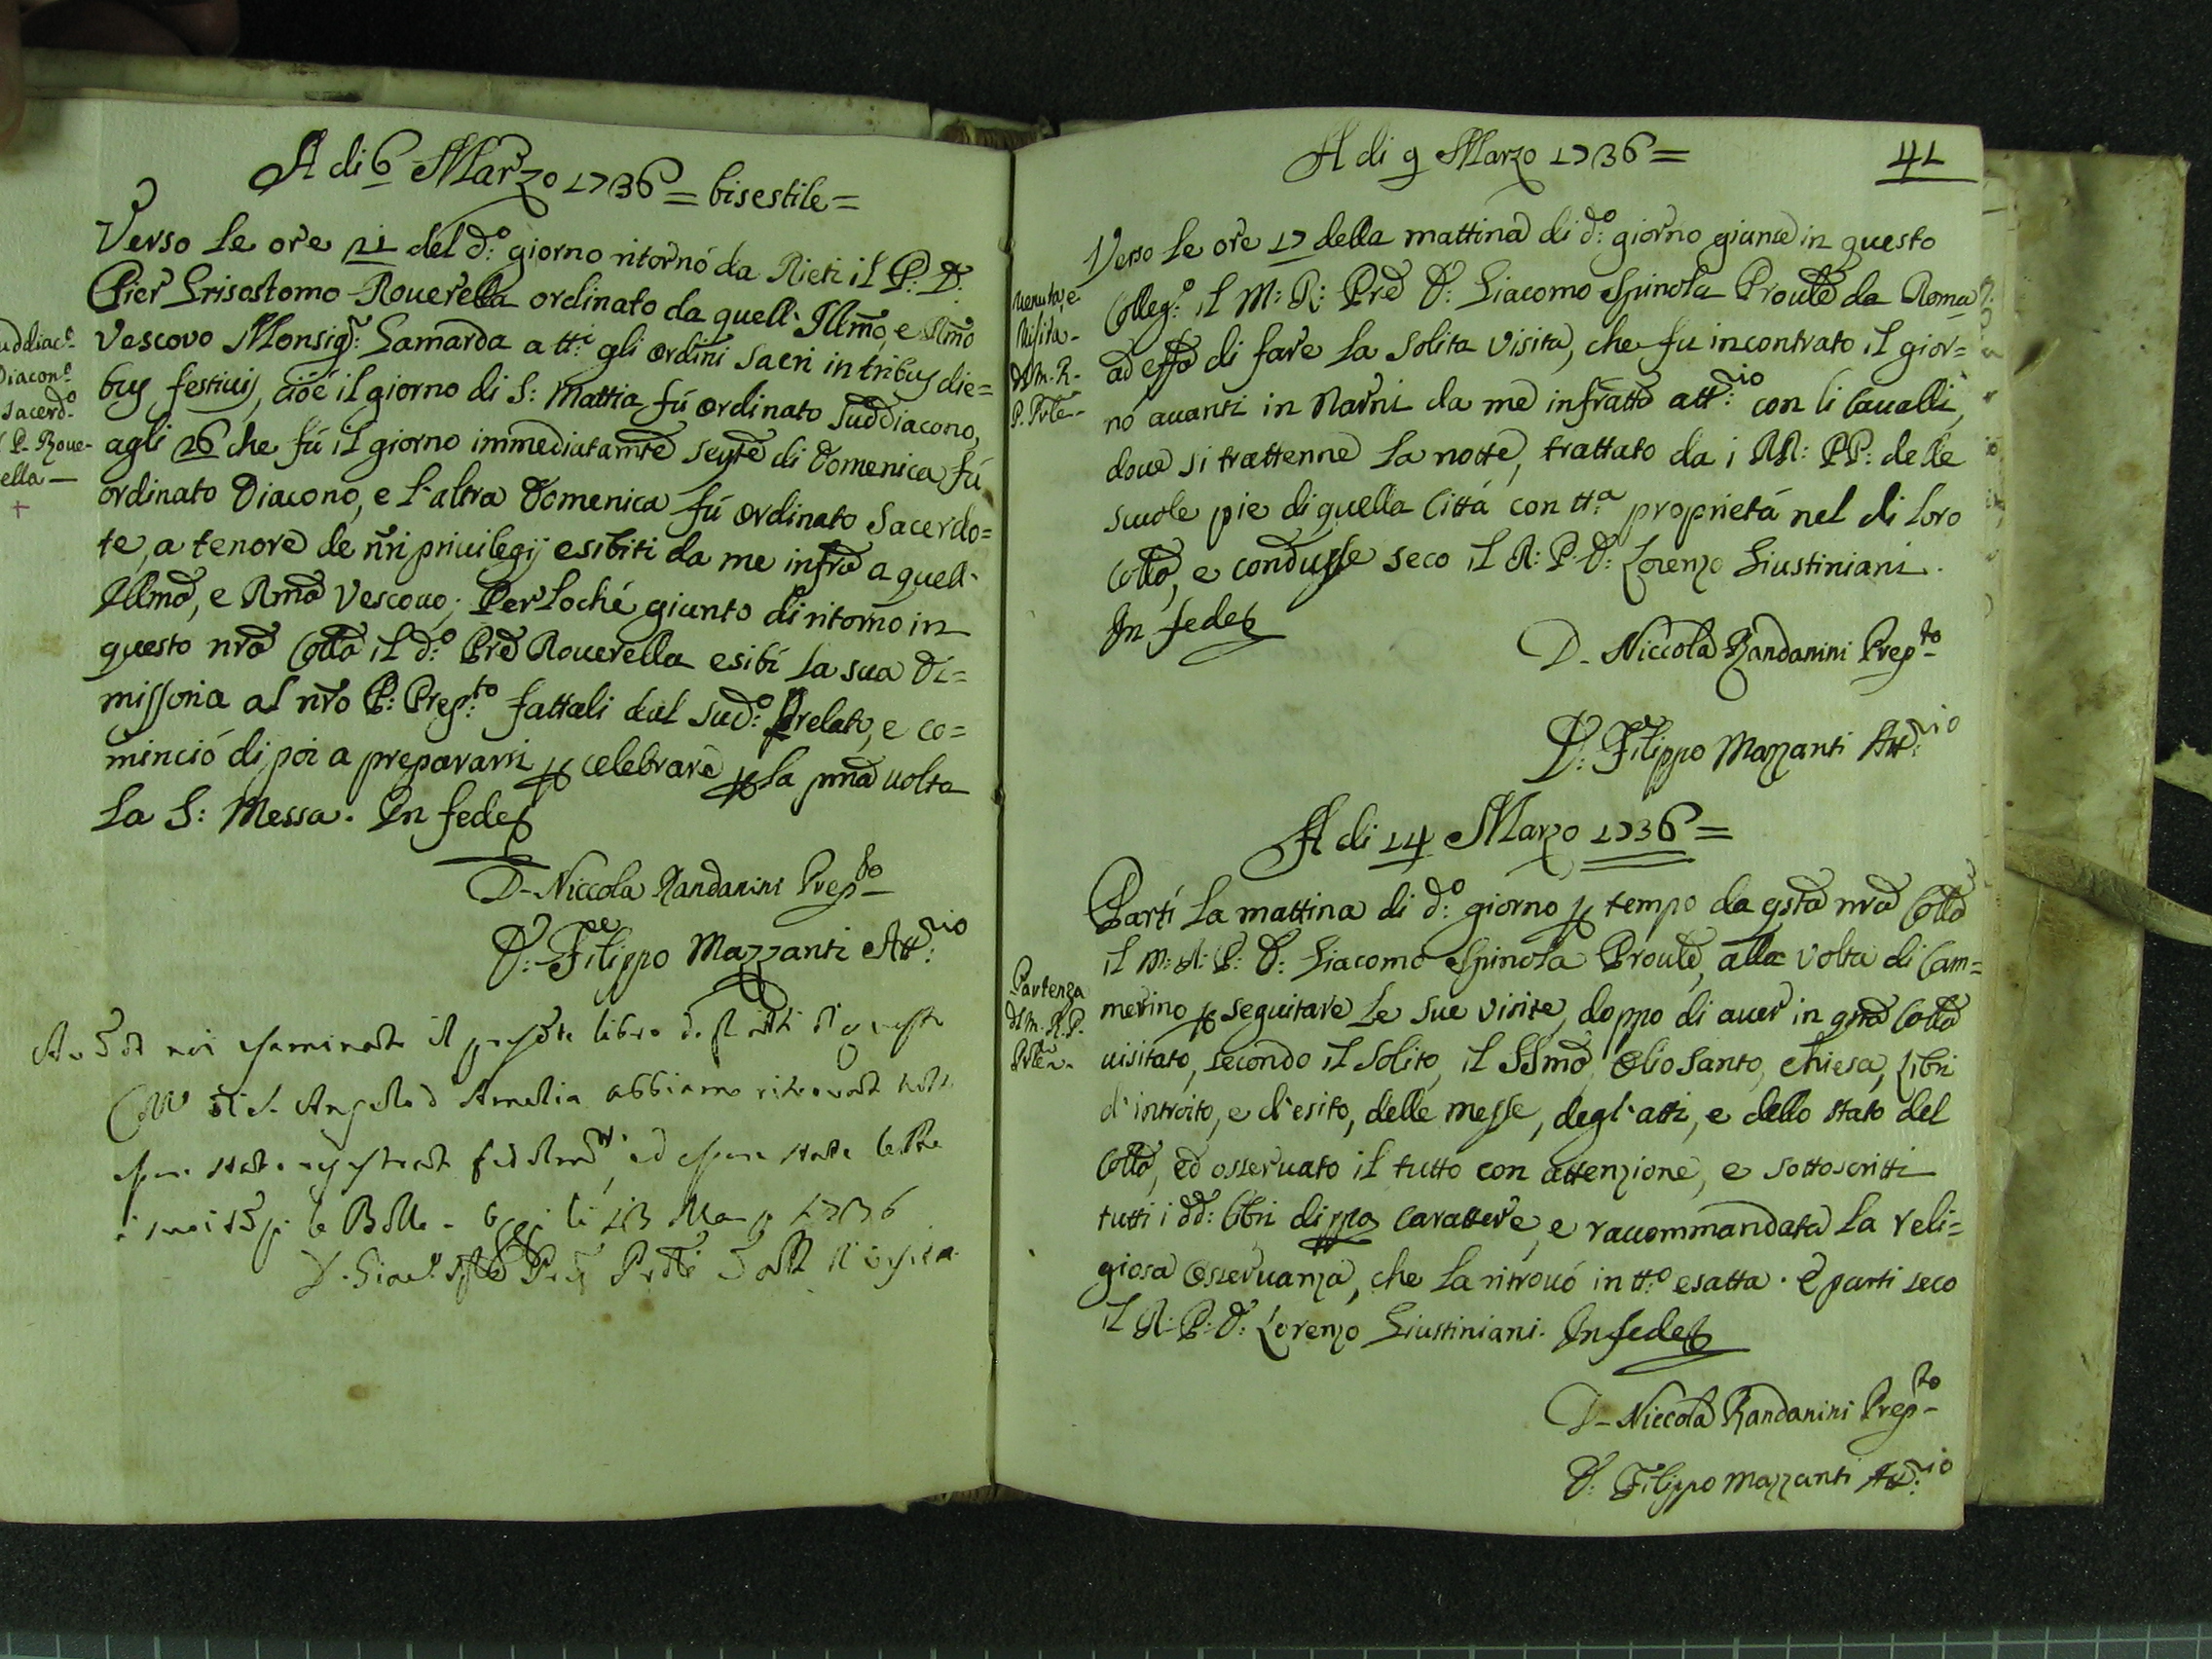 A di 6 Marzo 1736 = bisestile =
Verso le ore 21 del d:º giorno ritornó da Rieti il P: D:
Pier Grisostomo Rouerella ordinato da quell' Illmo, e Rmo
Vescovo Monsigr: Camarda a tt:i gli ordini sacri in tribus die=
bus festiuis, cioé il giorno di S: Mattia fú ordinato Suddiacono,
agli 26 che fú il giorno immediatamte segte di Domenica fú
ordinato Diacono, e l'altra Domenica fú ordinato Sacerdo=
te, a tenore de nri priuilegij esibiti da me infro a quell'
Illmo, e Rmo Vescouo; Per loché giunto di ritorno in
questo nro Collo il d:º Pre Rouerella esibí la sua Di=
missoria al nro P: Prep:to fattali dal sud:º Prelato, e co=
minció di poi a prepararsi p celebrare p la pma uolta
la S: Messa. In fede
D- Niccola Randanini Prepto
D: Filippo Mazzanti Att:rio
uddiacº
Diaconº
Sacerdº
P. Roue-
ella —
+
noi esaminato il libro
S. Angelo d Amelia abbiamo ritrovato
li 13 1736
A di 9 Marzo 1736 =
41
Verso le ore 17 della mattina di d:º giorno giunse in questo
Colleg:º il M: R: Pre D: Giacomo Spinola Proule da Roma
ad effo di fare la solita visita, che fu incontrato il gior=
no auanti in Narni da me infratto att:rio con li Caualli,
doue si trattenne la notte, trattato da i RR: PP: delle
scuole pie di quella Cittá con tt:a proprietá nel di loro
Collo, e condusse seco il R: P: D: Lorenzo Giustiniani.
In fede
D- Niccola Randanini Prepto
D: Filippo Mazzanti Att:rio
Venuta, e
Visita-
del M. R.
P. Prle-
A di 14 Marzo 1736 =
Partí la mattina di d:º giorno p tempo da qsto nro Collo
il M: R: P: D: Giacomo Spinola Proule, alla volta di Cam=
merino p seguitare le sue visite, doppo di auer in qsto Collo
uisitato, secondo il solito, il SSmo, Olio Santo, Chiesa, Libri
d'introito, e d'esito, delle messe, degl'atti, e dello stato del
Collo, ed osseruato il tutto con attenzione, e sottoscritti
tutti i dd: libri di ppo Carattere, e raccommandata la reli=
giosa osseruanza, che la ritrouó in tt:º esatta. E parti seco
il R: P: D: Lorenzo Giustiniani. In fede
D- Niccola Randanini Prepto
D: Filippo Mazzanti Att:rio
Partenza
del M. R. P.
Prle-